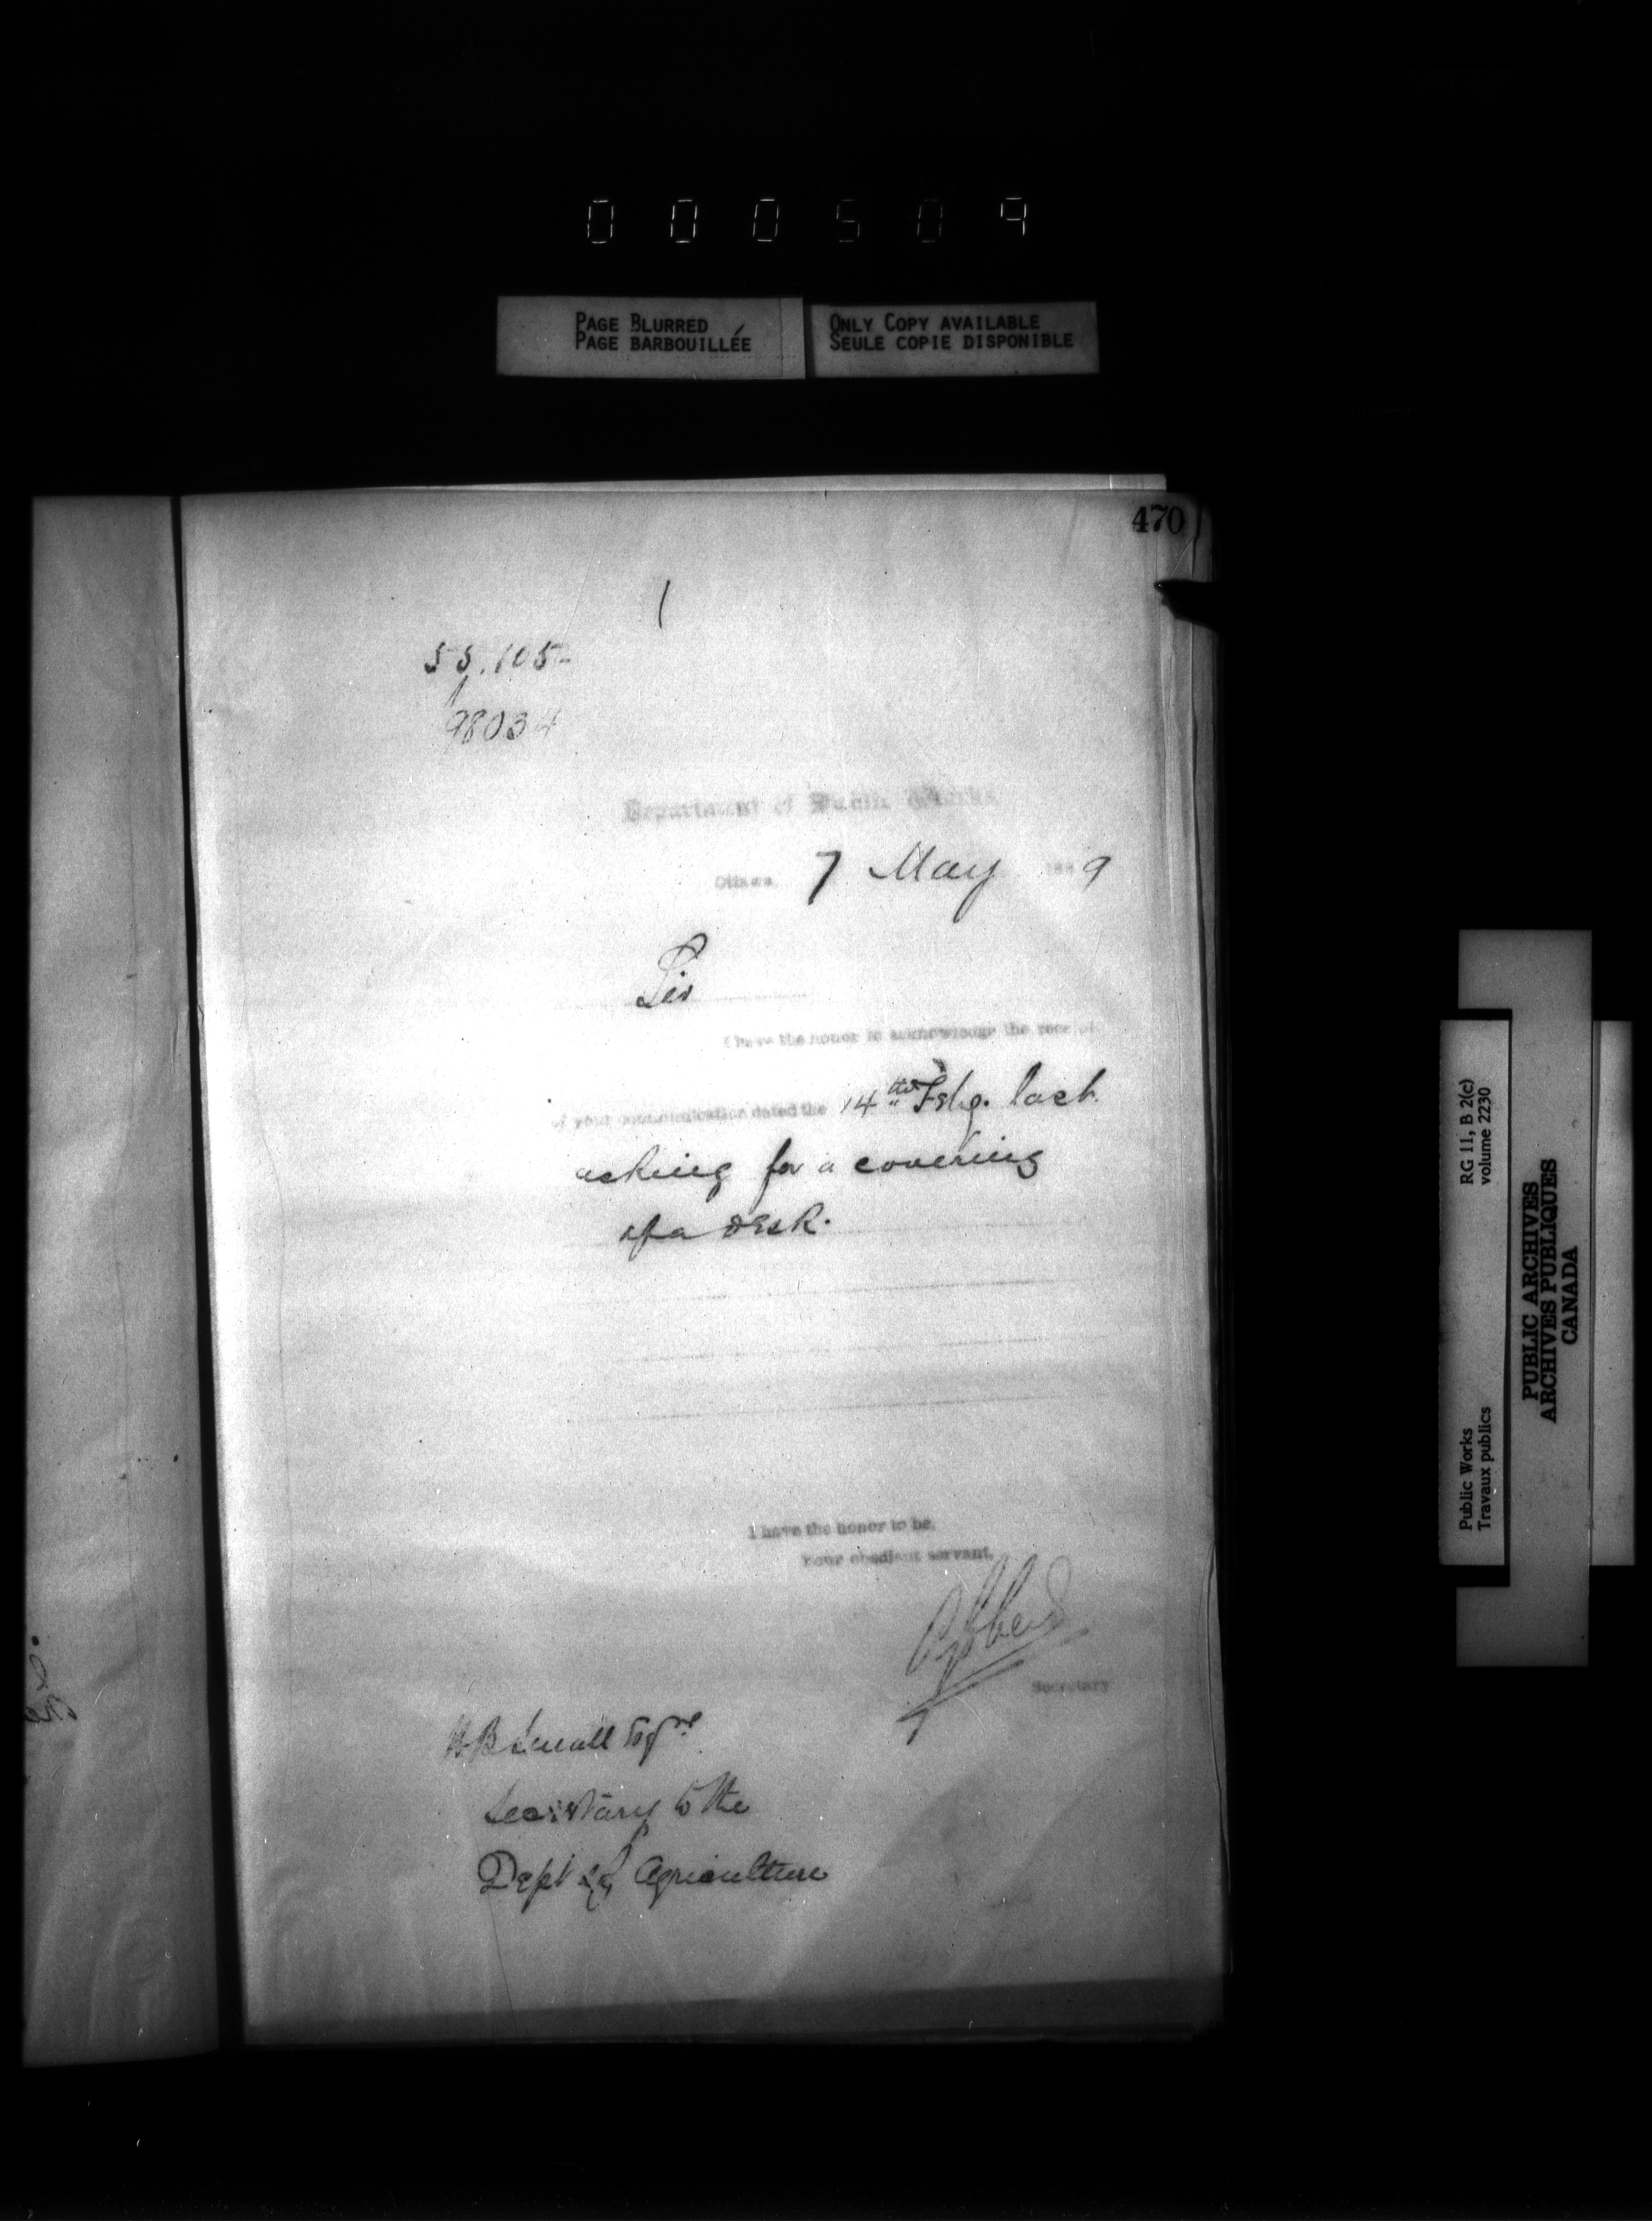 000509
PAGE BLURRED
PAGE BARBOUILLÉE
ONLY COPY AVAILABLE
SEULE COPIE DISPONIBLE
470
98034
Department of Public Works
Ottawa, 7 May 1889
Sir
I have the honor to acknowledge the receipt
of your communication dated the 14th Feby. last
asking for a covering
of a desk.
I have the honor to be,
Your obedient servant,
Secretary
H B Small Esqre
Secretary to the
Dept of Agriculture
Public Works
Travaux publics
RG 11, B 2(c)
volume 2230
PUBLIC ARCHIVES
ARCHIVES PUBLIQUES
CANADA